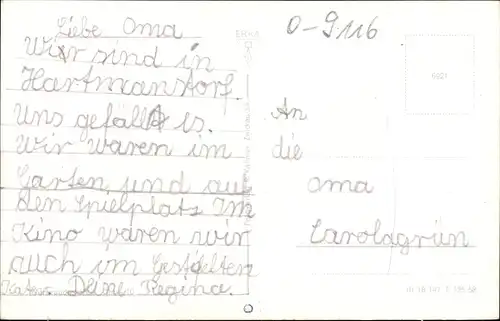 Liebe Oma
Wir sind in
Hartmanstorf.
Uns gefällt es.
Wir waren im
Garten und auf
den Spielplatz Im
Kino waren wir
auch im Gestifelten
Kater. Deine Regina.
0-9116
An
die
Oma
Carolagrün